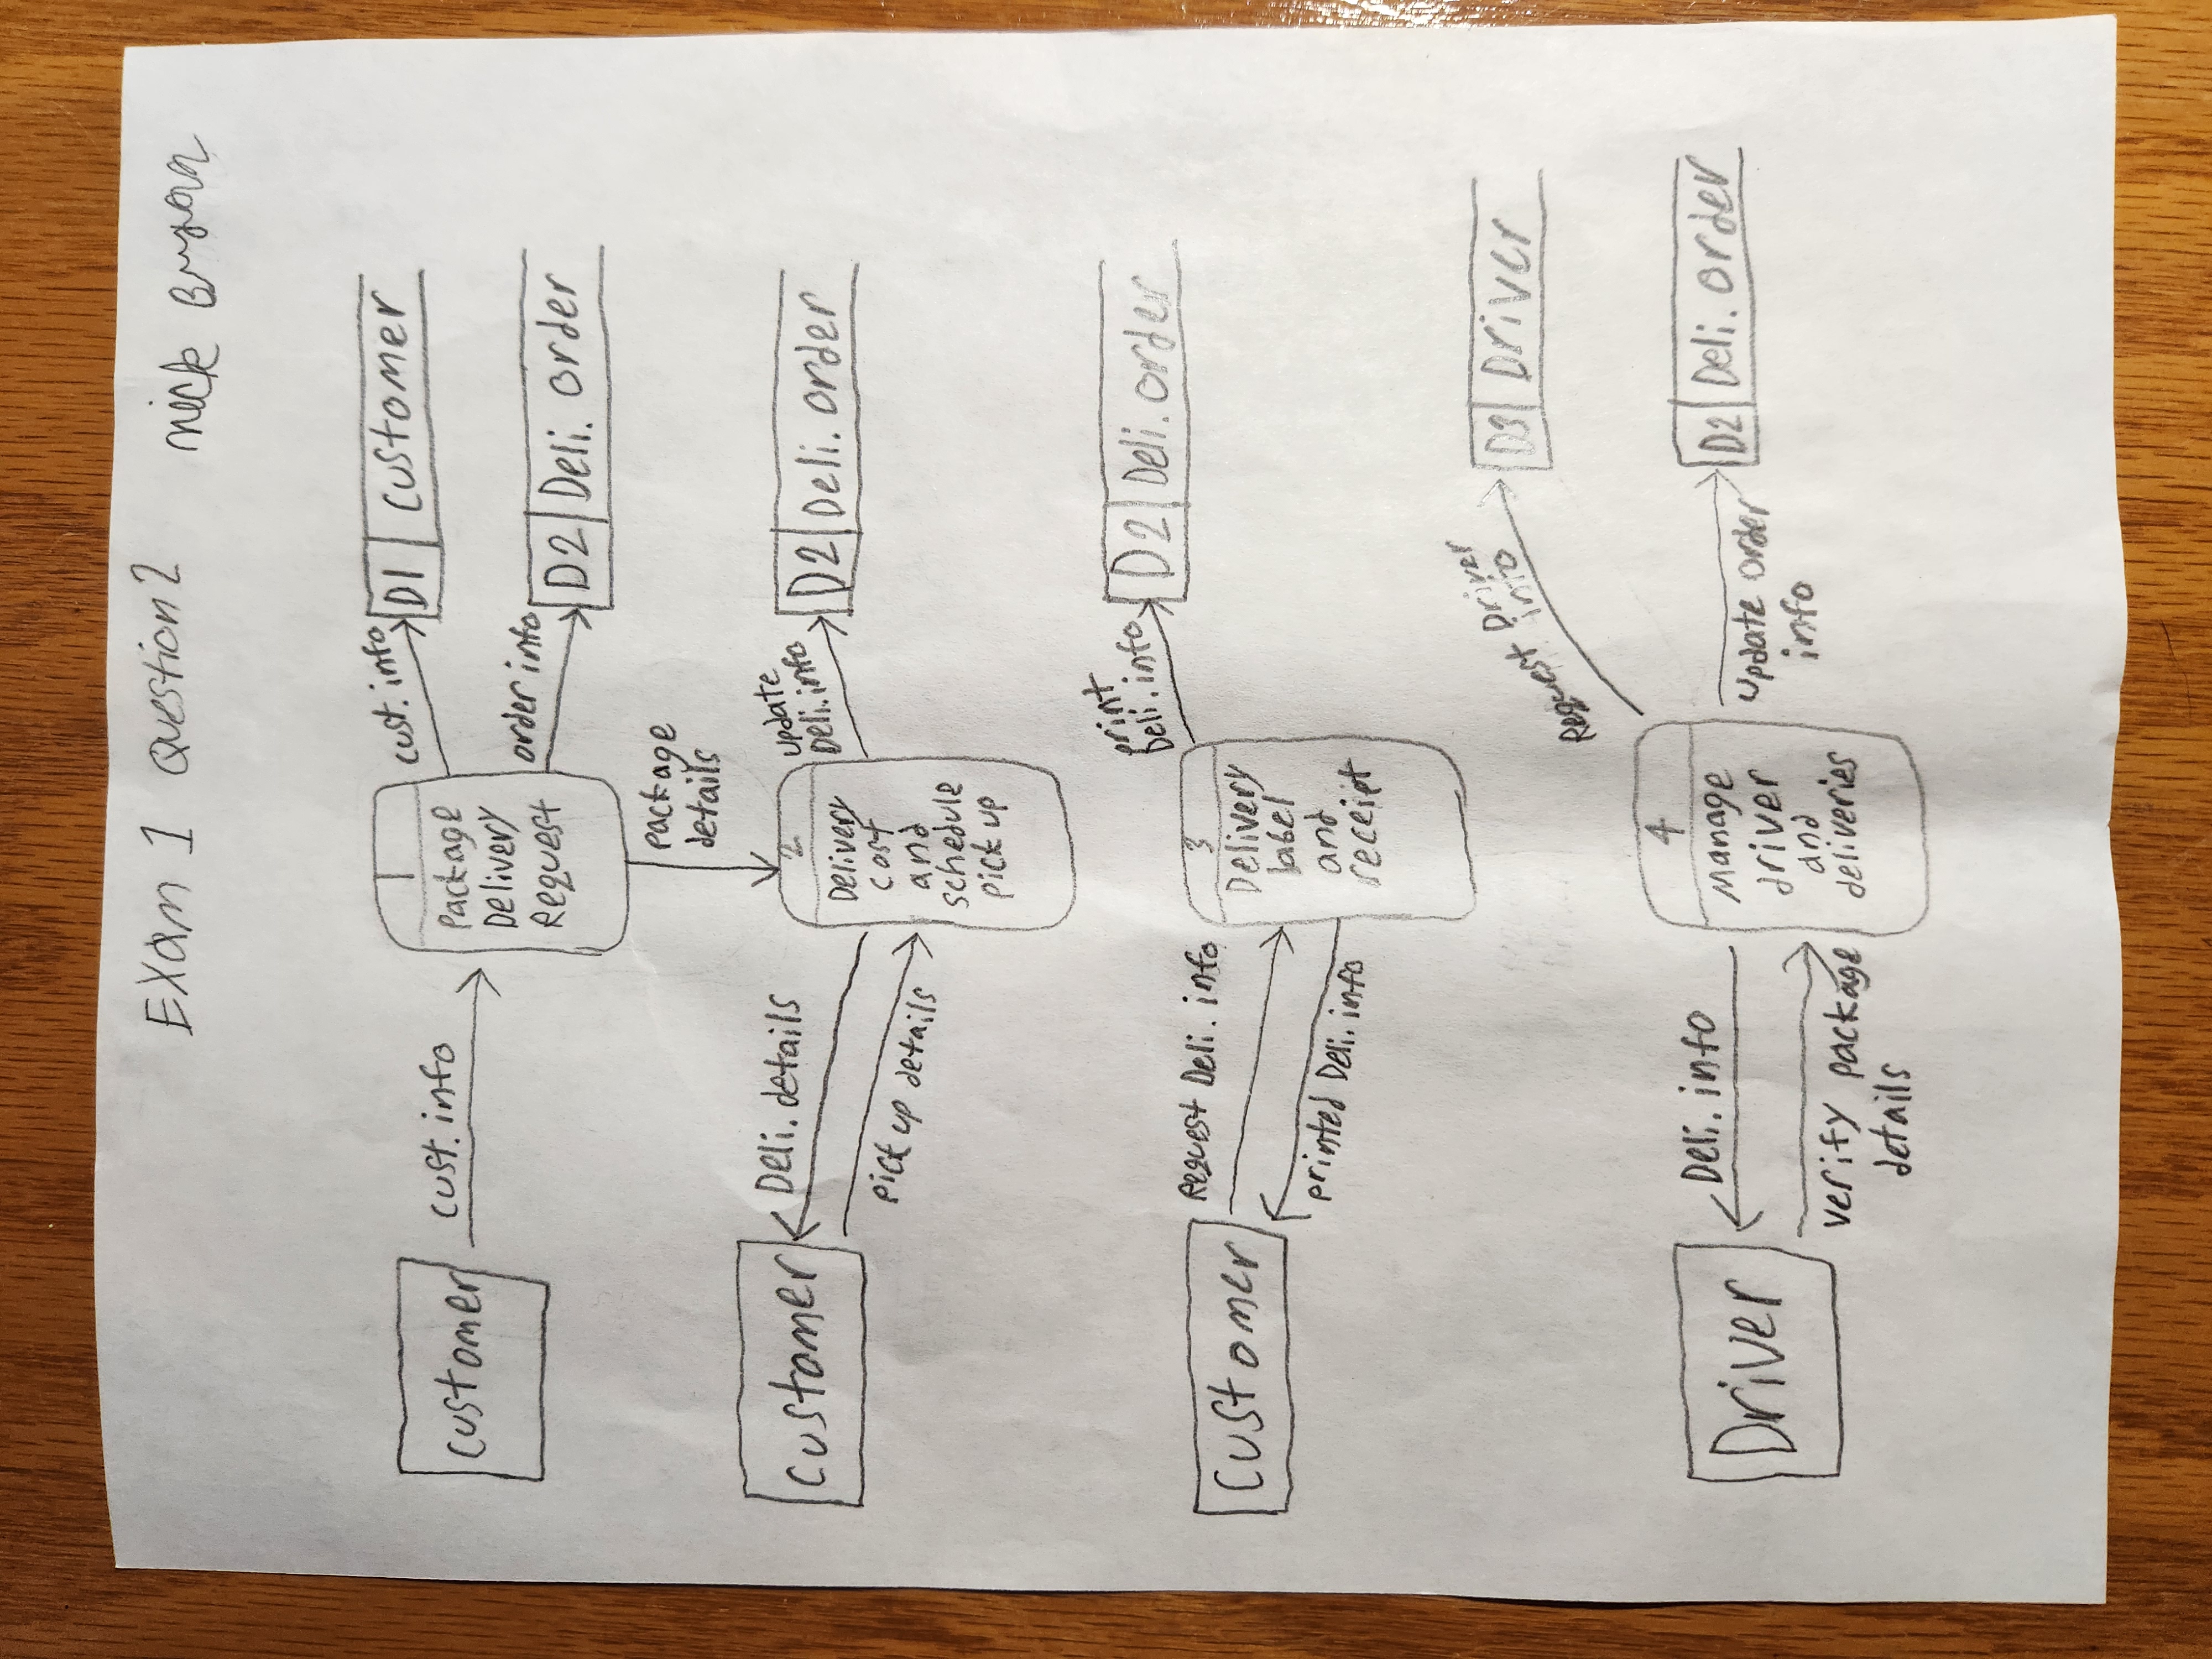 Exam 1 Question 2 Nick
customer
cust. info
1
Package
Delivery
Request
cust. info
D1 customer
order info
D2 Deli. order
package
details
customer
Deli. details
pick up details
2
Delivery
cost
and
schedule
pick up
update
Deli. info
D2 Deli. order
customer
Request Deli. info
printed Deli. info
3
Delivery
label
and
receipt
print
Deli. info
D2 Deli. order
Driver
Deli. info
verify package
details
4
Manage
driver
and
deliveries
Request Driver
info
D3 Driver
update order
info
D2 Deli. order